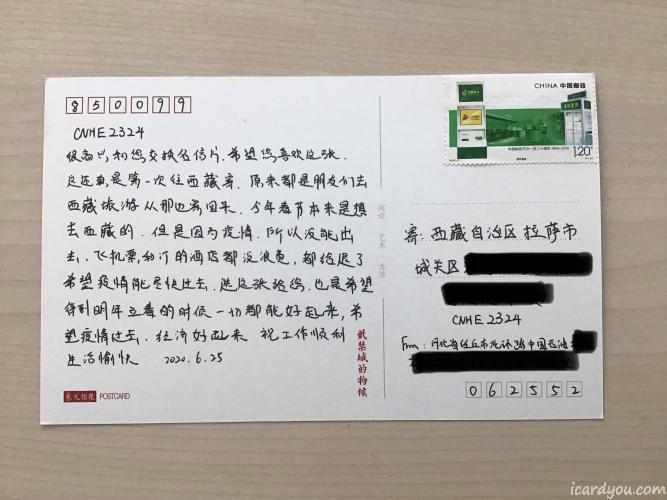 850099
CNHE2324
很高兴和您交换名信片.希望您喜欢这张.
这还真是第一次往西藏寄.原来都是朋友们去
西藏旅游从那边寄回来.今年春节本来是想
去西藏的.但是因为疫情.所以没能出
去.飞机票和订的酒店都没浪费,都给退了
希望疫情能尽快过去.选这张给您,也是希望
等到明年立春的时候一切都能好起来,希
望疫情过去.经济好起来 祝工作顺利
生活愉快 2020.6.25
紫禁城的物候
POSTCARD
阅读·艺术·生活
CHINA 中国邮政
中国邮政开办一百二十周年 1896-2016
120
寄:西藏自治区拉萨市
城关区
CNHE2324
From:河北省任丘市北环路中国石油
062552
icardyou.com